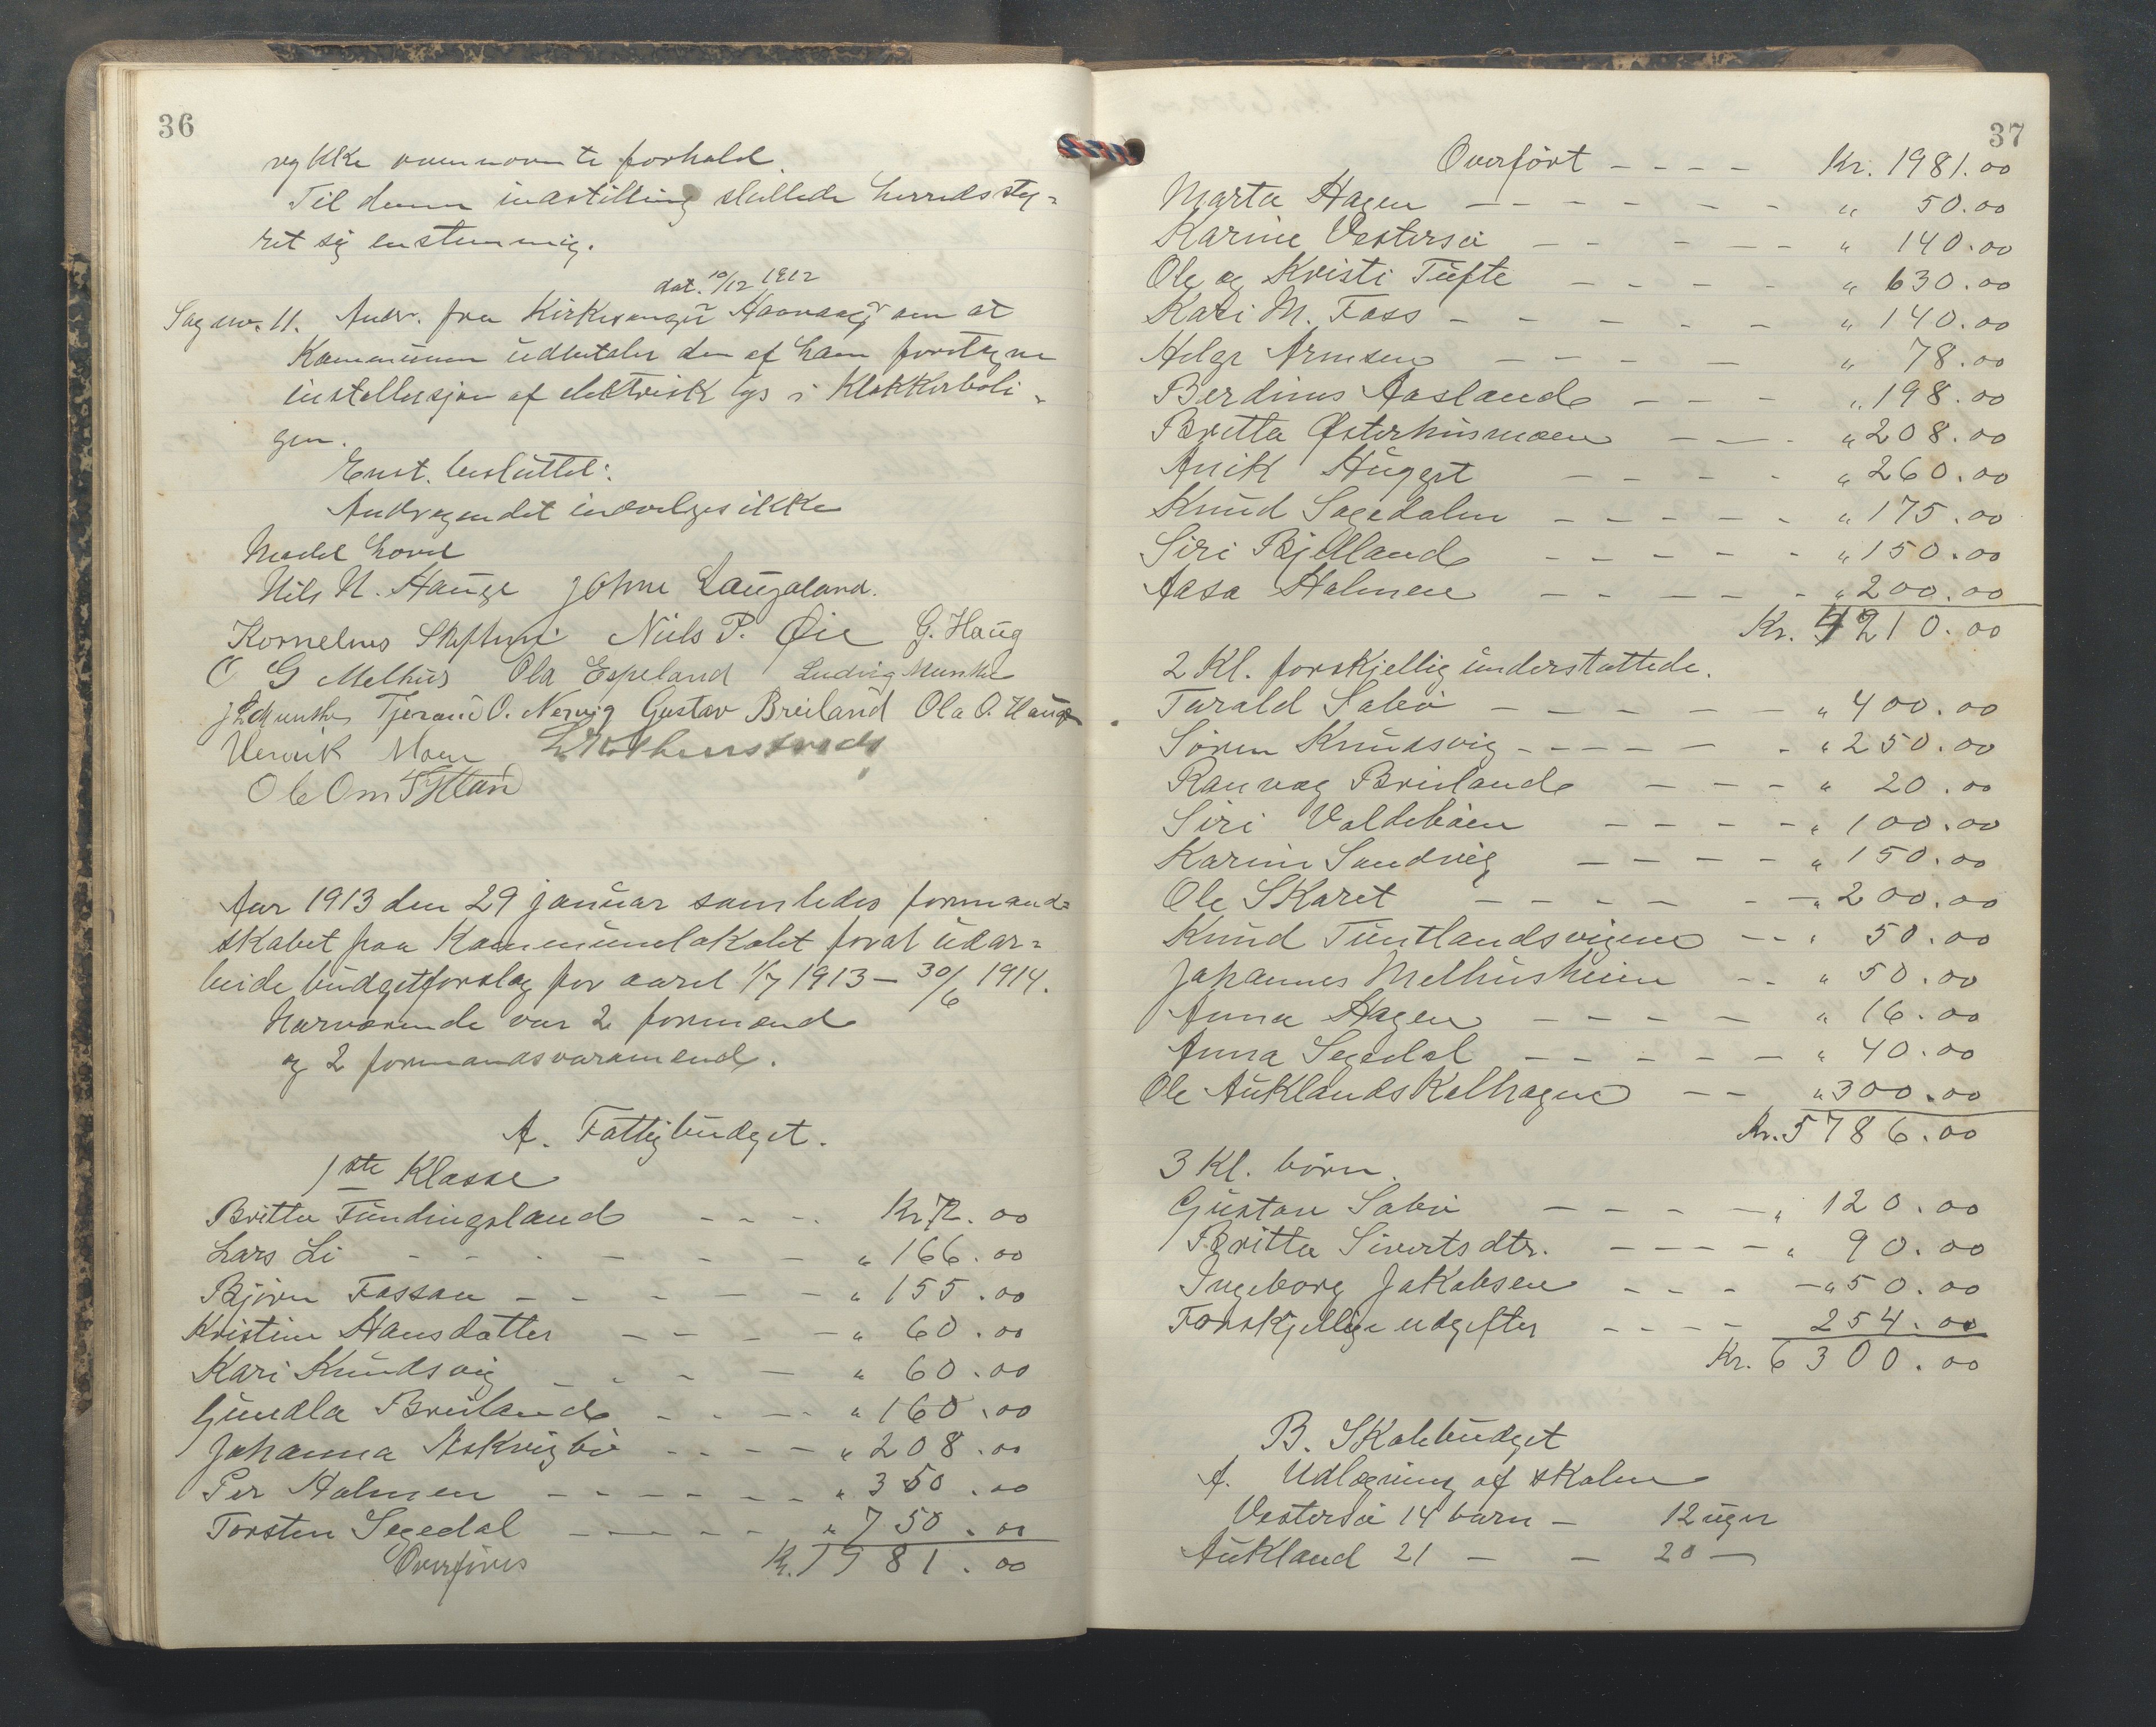 36
rykke ovennævnte forhold
Til denne indstilling sluttede herredssty-
ret sig enstemmig.
dat. 10/12 1912
Sag nr. 11. Andr. fra Kirkesanger om at
Kommunen udbetaler den af ham foretagne
installasjon af elektrisk lys i Klokkerboli-
gen.
Enst. besluttet:
Andragendet indvilges ikke
Mødet hævet
Nils N. Hauge Johne Laugaland.
Kornelius Niels P. Øie G. Haug
O G Melhus Ola Espeland Ludvig Munthe
J L Munthe Tjerand O. Nervig Gustav Breiland Ola O. Haugs
Henrik Moen
Ole
Aar 1913 den 29 januar samledes formand-
skabet paa Kommunelokalet forat udar-
beide budgetforslag for aaret 1/7 1913 – 30/6 1914.
Nærværende var 2 formænd
og 2 formandsvaramænd.
A. Fattigbudget.
1ste Klasse
Britta Tundingsland - - - - Kr. 72.00
Lars Li - - - - - - - " 166.00
Bjørn Fossan - - - - - " 155.00
Kristine Hansdatter - - - - " 60.00
Kari Knudsvig - - - - " 60.00
Gundla Breiland - - - - " 160.00
Johanna Askvigbø - - - - " 208.00
Per Holmen - - - - - - - " 350.00
Torsten Segedal - - - - - " 750.00
Overføres Kr. 1981.00
37
Overført - - - - Kr. 1981.00
Marta Hagen - - - - - - - " 50.00
Karine Vestersø - - - - - - " 140.00
Ole og Kristi Tufte - - - - " 630.00
Kari M. Foss - - - - - - " 140.00
Helge Arnesen - - - - - " 78.00
Berdinus Aasland - - - " 198.00
Britta Østerhusmoen - - - " 208.00
Anik - - - - " 260.00
Knud Sagedalen - - - - - " 175.00
Siri Bjelland - - - - - " 150.00
Aasa Holmen - - - - - - " 200.00
Kr. 4210.00
2 Kl. forskjellig understøttede.
Tarald Sabø - - - - - - " 400.00
Søren Knudsvig - - - - - - " 250.00
Ranvag Breiland - - - " 20.00
Siri Valdebøen - - - - " 100.00
Karin Sandvig - - - - " 150.00
Ole Skaret - - - - - - " 200.00
Knud Tuntlandsvigene - - " 50.00
Johannes Melhusheien - - " 50.00
Anna Hagen - - - - - " 16.00
Anna Segedal - - - - - - " 40.00
Ole Auklandskalhagen - - " 300.00
Kr. 5786.00
3 Kl. børn.
Gustav Sabø - - - - - " 120.00
Britta Sivertsdtr. - - - - " 90.00
Ingeborg Jakobsen - - - - " 50.00
Forskjellige udgifter - - - - 254.00
Kr. 6300.00
B. Skolebudget
A. Udlægning af skolen
Vestersø 14 barn – 12 uger
Aukland 21 – – 20 –